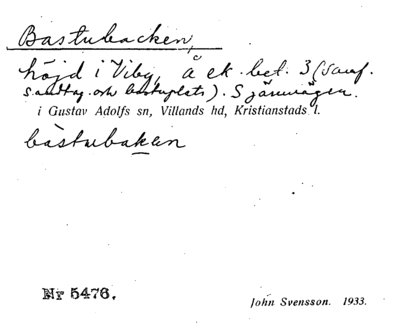 Bastubacken,
höjd i Viby, å ek. bet. 3 (samf.
sandtag och bastuplats). S järnvägen.
i Gustav Adolfs sn, Villands hd, Kristianstads l.
bastubakan
Nr 5476.
John Svensson. 1933.